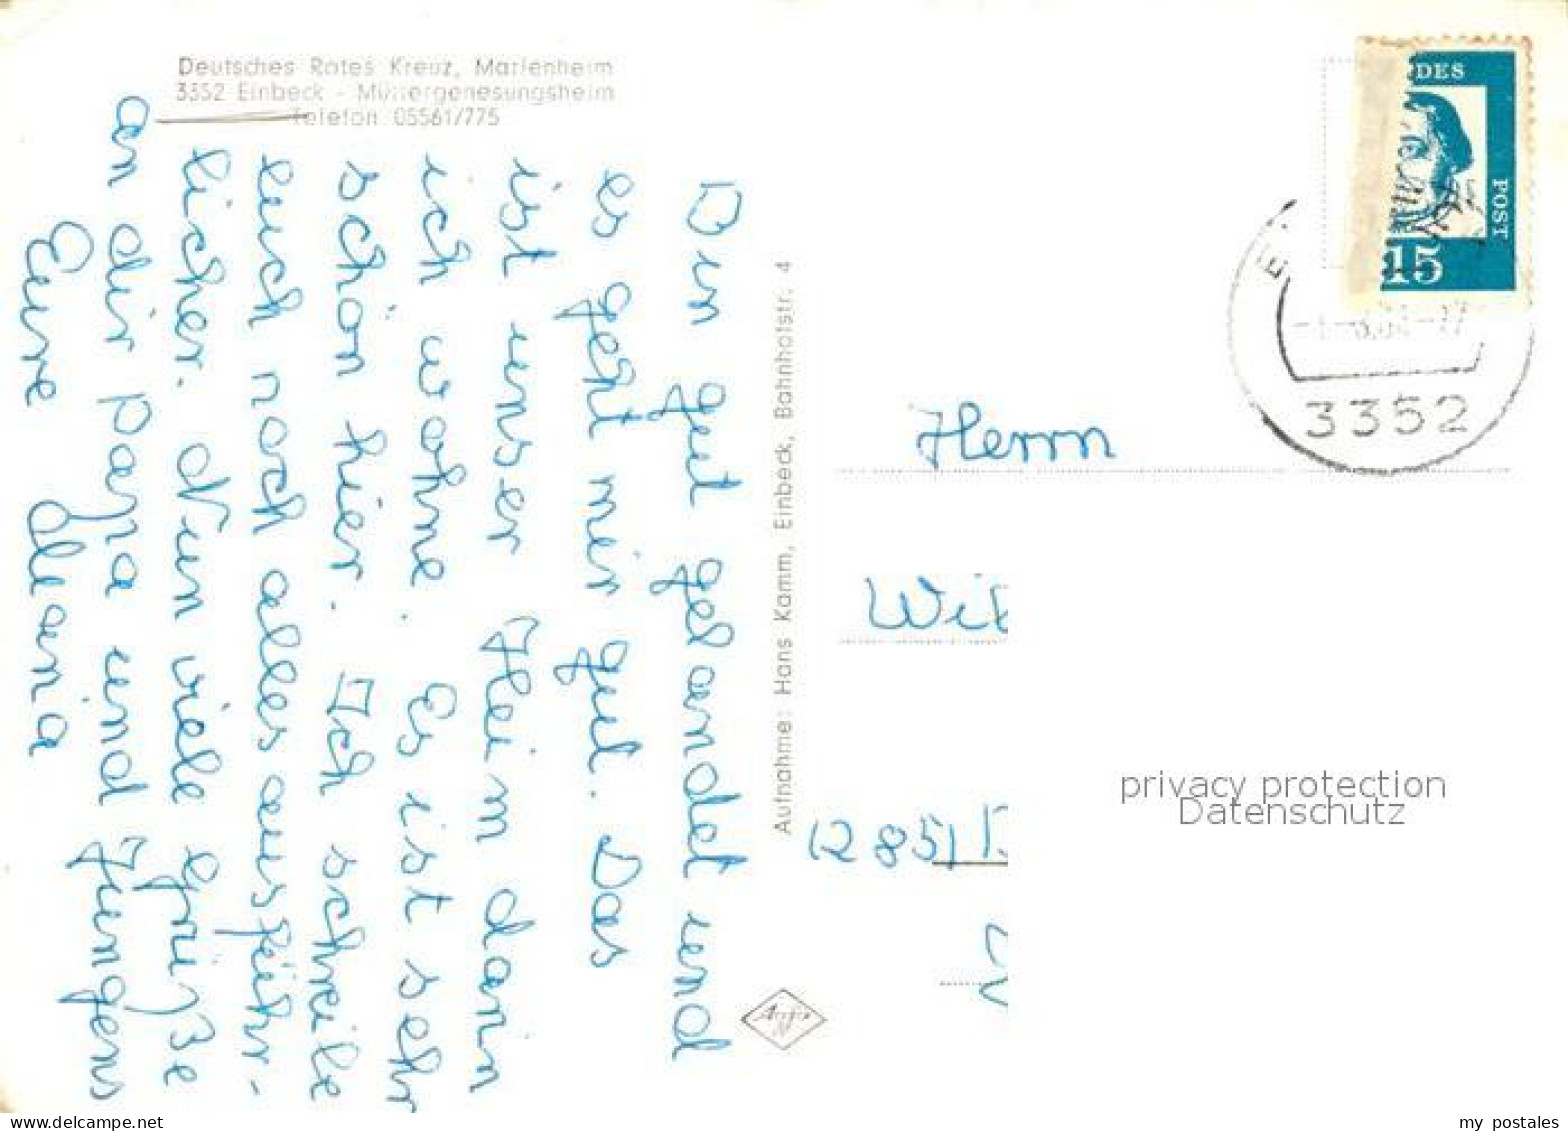 Deutsches Rotes Kreuz, Marienheim
3352 Einbeck - Müttergenesungsheim
Telefon 05561/775
Bin gut gelandet und
es geht mir gut. Das
ist unser Heim darin
ich wohne. Es ist sehr
schön hier. Ich schreibe
euch noch alles ausführ-
licher. Nun viele Grüße
an dir papa und Jungens
Eure Mama
Aufnahme: Hans Kamm, Einbeck, Bahnhofstr. 4
Agfa
DES
POST
15
3352
Herrn
Wil
12851
privacy protection
Datenschutz
my postales